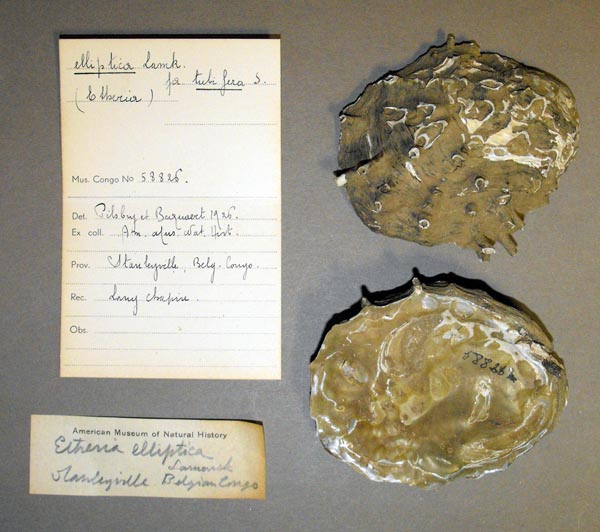 elliptica Lamk.
fa tubifera S.
(Etheria)
Mus. Congo No 58826.
Det. Pilsbry et Bequaert 1926.
Ex coll. Am. Mus. Nat. Hist.
Prov. Stanleyville, Belg. Congo.
Rec. Lang Chapin.
Obs.
American Museum of Natural History
Etheria elliptica
Lamarck
Stanleyville Belgian Congo
58826